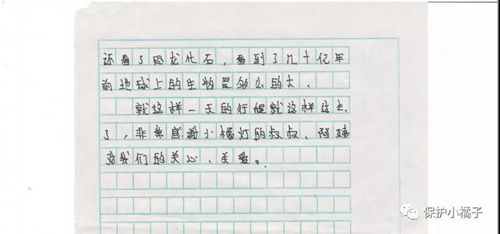 还看了恐龙化石，看到了几十亿年
前地球上的生物是多么的大．
就这样一天的行程就这样过去
了，非常感谢小橘灯的叔叔、阿姨
对我们的关心、关爱。
保护小橘子